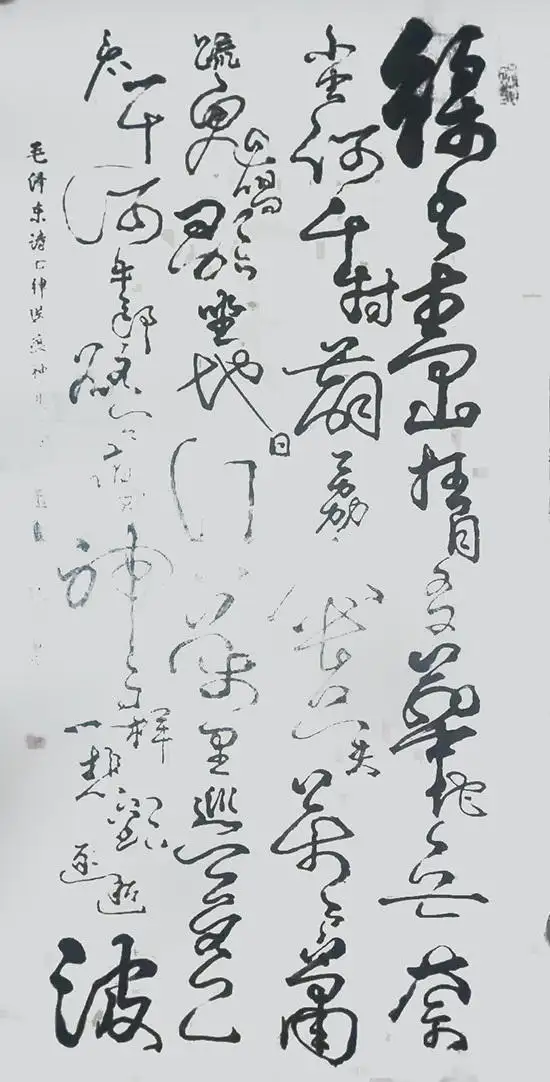 綠水青山枉自多華佗無奈
小虫何千村薜荔人遺矢萬戶蕭
疏鬼唱歌坐地日行八萬里巡天遥
看一千河牛郎欲問瘟神事一樣悲歡逐逝波
毛泽东诗七律送瘟神